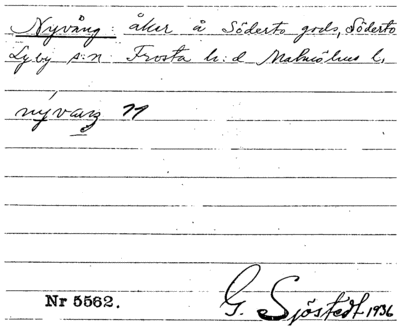 Nyvång: åker å Söderto gods, Söderto
Lyby s:n Frosta h:d Malmöhus l.
nyvaŋ 11
Nr 5562.
G. Sjöstedt 1936